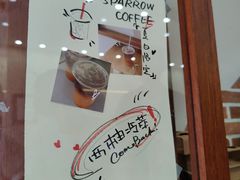 SPARROW
COFFEE
夏日限定
西柚冷萃
Come Back!